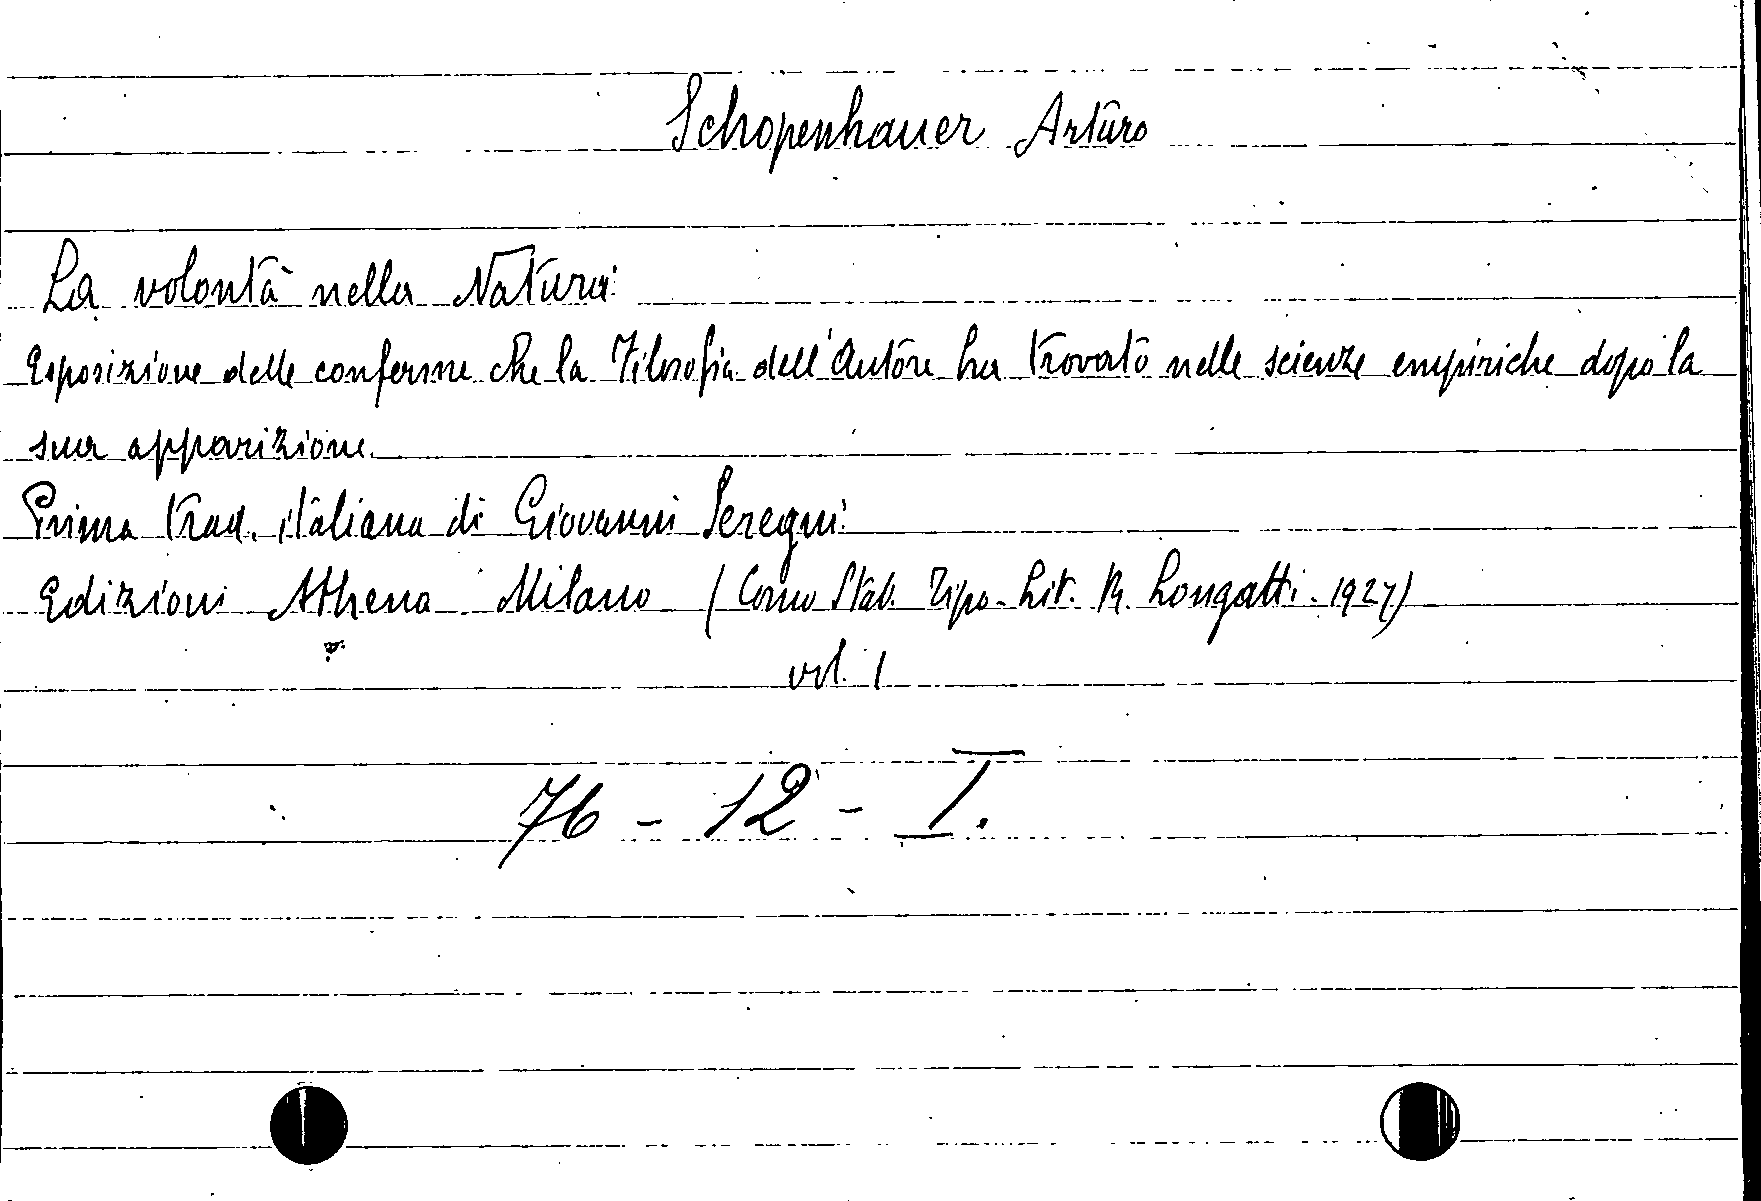 Schopenhauer Arturo
La volontà nella Natura:
Esposizione delle conferme che la Filosofia dell'Autore ha trovato nelle scienze empiriche dopo la
sua apparizione.
Prima trad. italiana di Giovanni Seregni.
Edizioni Athena Milano (Como Stab. Tipo-Lit. R. Longatti - 1927)
vol. 1
76 - 12 - I.